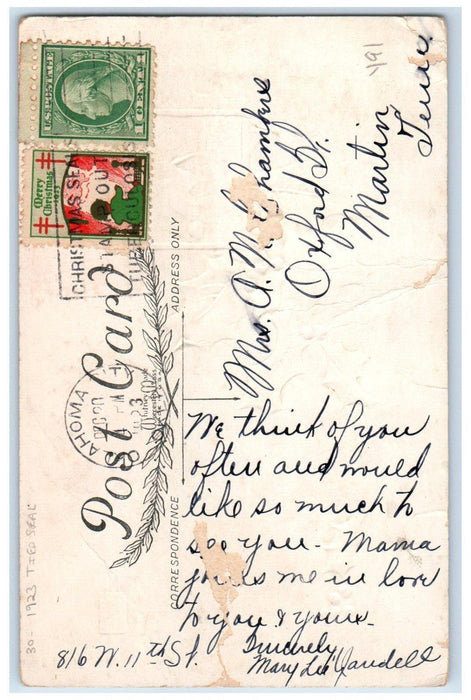 U.S. POSTAGE
1 CENT 1
Merry
Christmas
1923
CHRISTMAS SEALS
STAMP OUT
TUBERCULOSIS
AHOMA
DEC 20
PM
1923
Post Card
ADDRESS ONLY
CORRESPONDENCE
491
Mrs. A. M. Chambers
Oxford St.
Martin
Tenn.
We think of you
often and would
like so much to
see you - Mama
joins me in love
to you & yours -
Sincerely
Mary Lee Yandell
816 W. 11th St.
30 - 1923 TIED SEAL